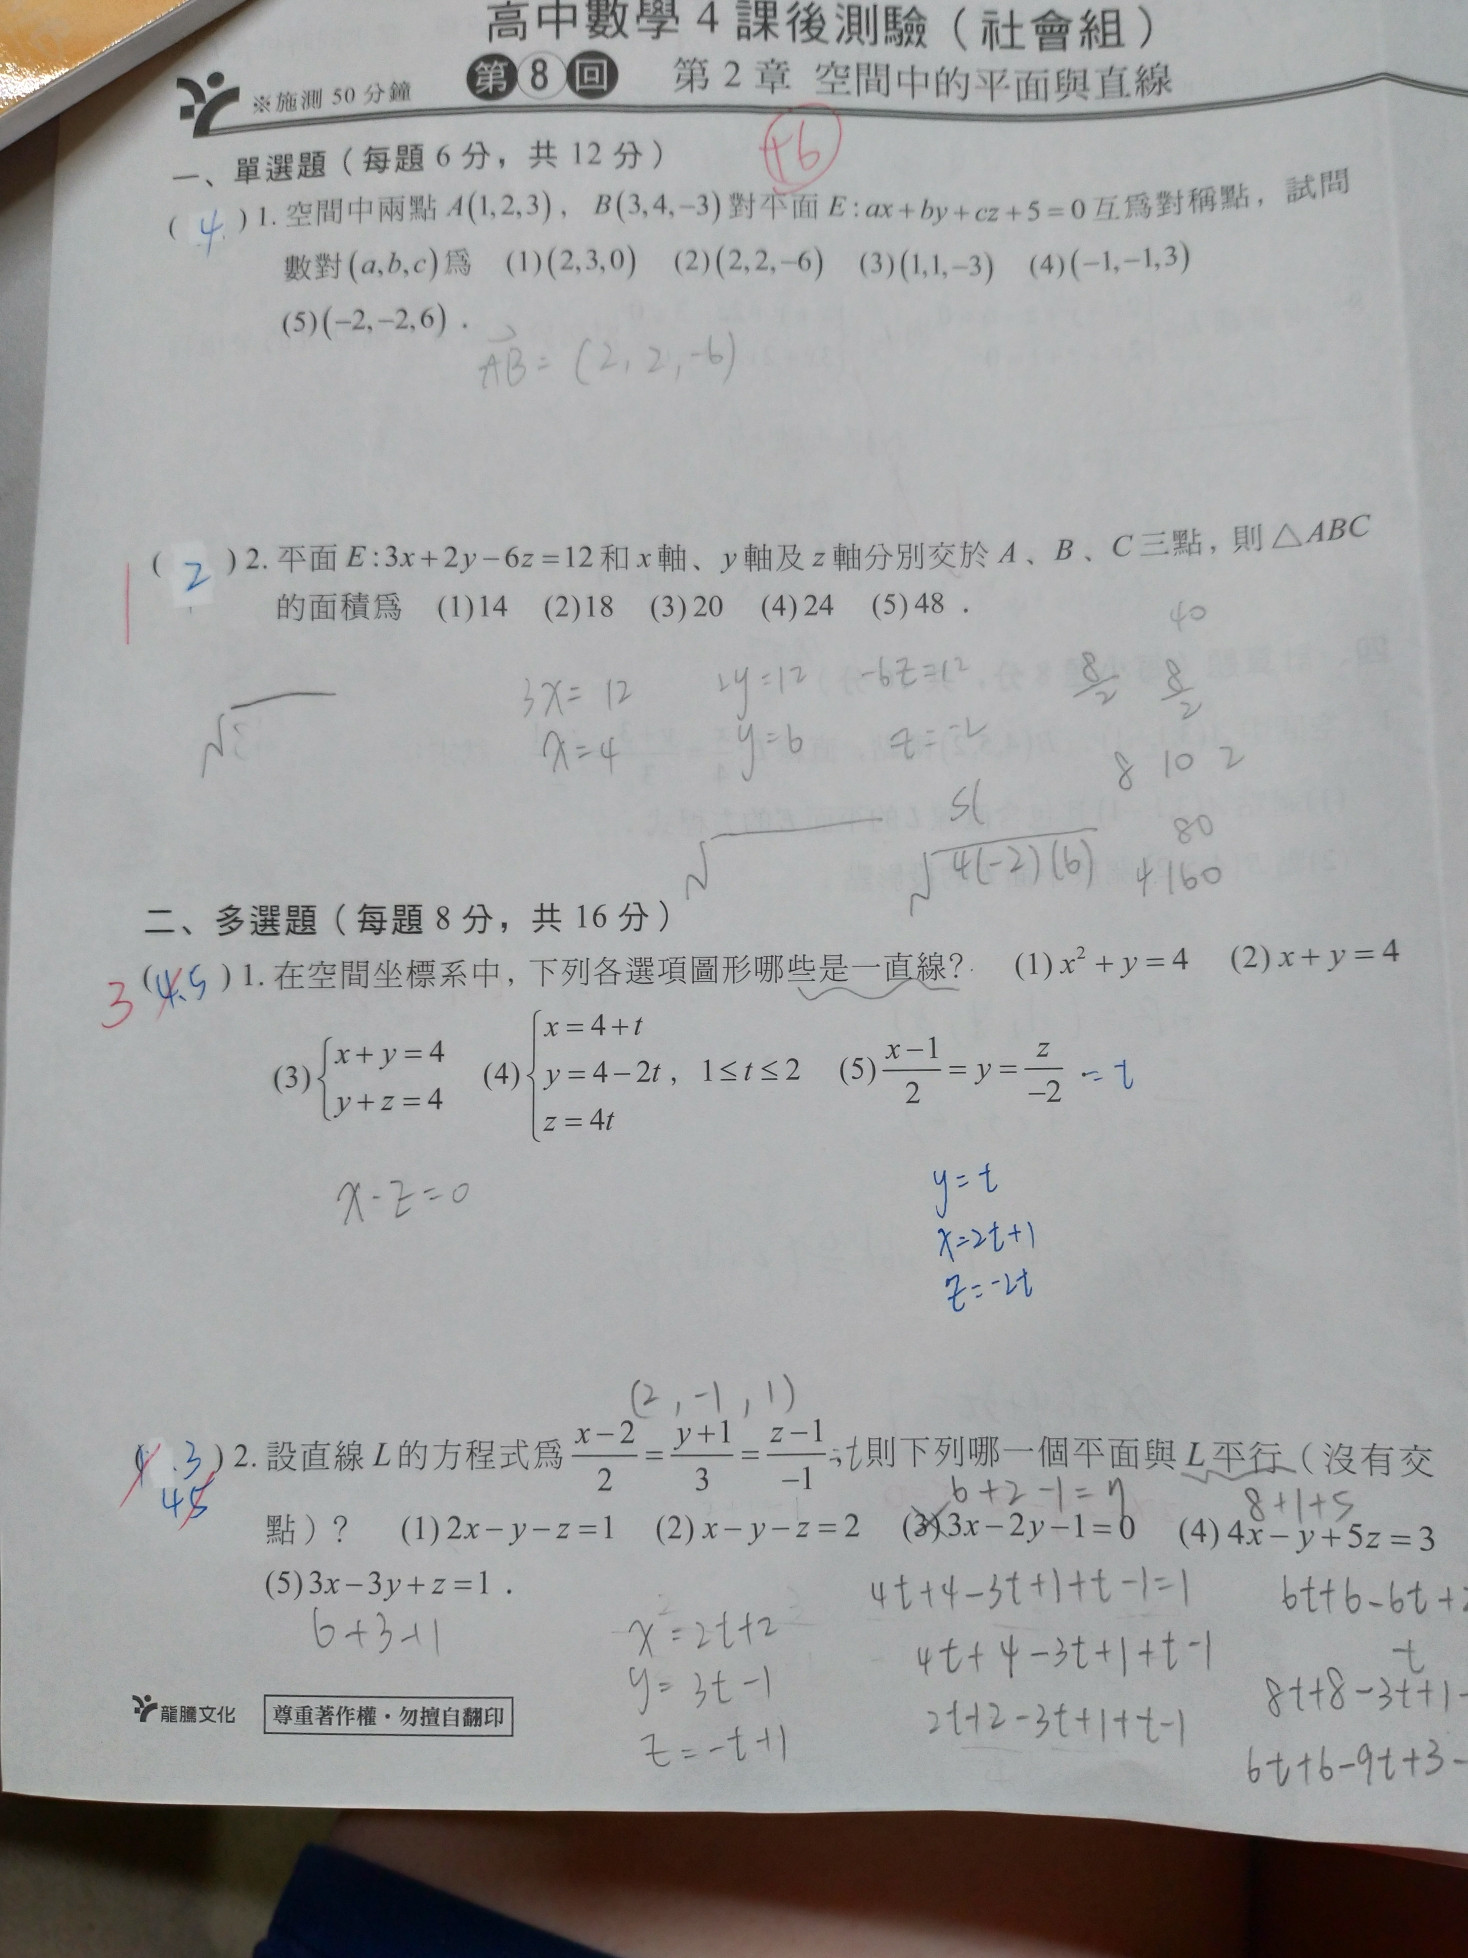 高中數學 4 課後測驗（社會組）
※施測 50 分鐘 第 8 回 第 2 章 空間中的平面與直線
+6
一、單選題（每題 6 分，共 12 分）
( 4 ) 1. 空間中兩點 A(1,2,3)，B(3,4,−3) 對平面 E:ax+by+cz+5=0 互為對稱點，試問
數對 (a,b,c) 為 (1)(2,3,0) (2)(2,2,−6) (3)(1,1,−3) (4)(−1,−1,3)
(5)(−2,−2,6)．
AB = (2, 2, -6)
1 ( 2 ) 2. 平面 E:3x+2y−6z=12 和 x 軸、y 軸及 z 軸分別交於 A、B、C 三點，則 △ABC
的面積為 (1)14 (2)18 (3)20 (4)24 (5)48．
40
3x = 12 2y=12 -6z=12 8/2 8/2
x=4 y=6 z=-2
8 10 2
√4(-2)(6) 80
4 160
二、多選題（每題 8 分，共 16 分）
3 (4.5 ) 1. 在空間坐標系中，下列各選項圖形哪些是一直線? (1) x²+y=4 (2) x+y=4
(3) {x+y=4 y+z=4 (4) {x=4+t y=4−2t z=4t ，1≤t≤2 (5) (x−1)/2 = y = z/−2 = t
x-z=0
y=t
x=2t+1
z=-2t
(2, -1, 1)
( .3 45 ) 2. 設直線 L 的方程式為 (x−2)/2 = (y+1)/3 = (z−1)/−1 =t 則下列哪一個平面與 L 平行（沒有交
6+2-1=7 8+1+5
點）? (1) 2x−y−z=1 (2) x−y−z=2 (3) 3x−2y−1=0 (4) 4x−y+5z=3
(5) 3x−3y+z=1．
4t+4-3t+1+t-1=1 6t+6-6t+2
6+3+1 x=2t+2
4t+4-3t+1+t-1 t
y=3t-1
8t+8-3t+1-
2t+2-3t+1+t-1
z=-t+1
6t+6-9t+3-
龍騰文化 尊重著作權・勿擅自翻印